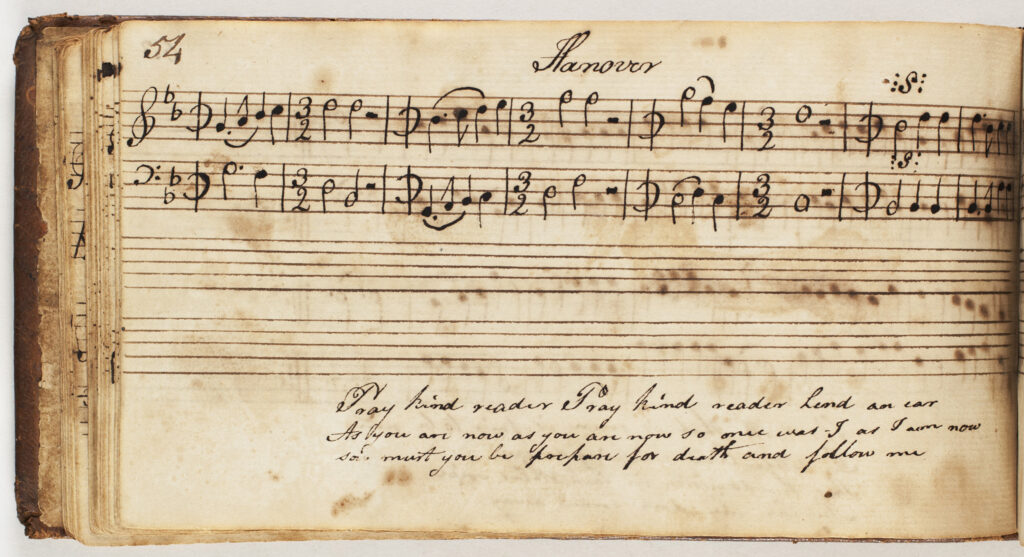 54
Hanover
3 2 3 2 3 2
:S:
:S:
3 2 3 2 3 2
Pray kind reader Pray kind reader lend an ear
As you are now as you are now so once was I as I am now
so must you be prepare for death and follow me